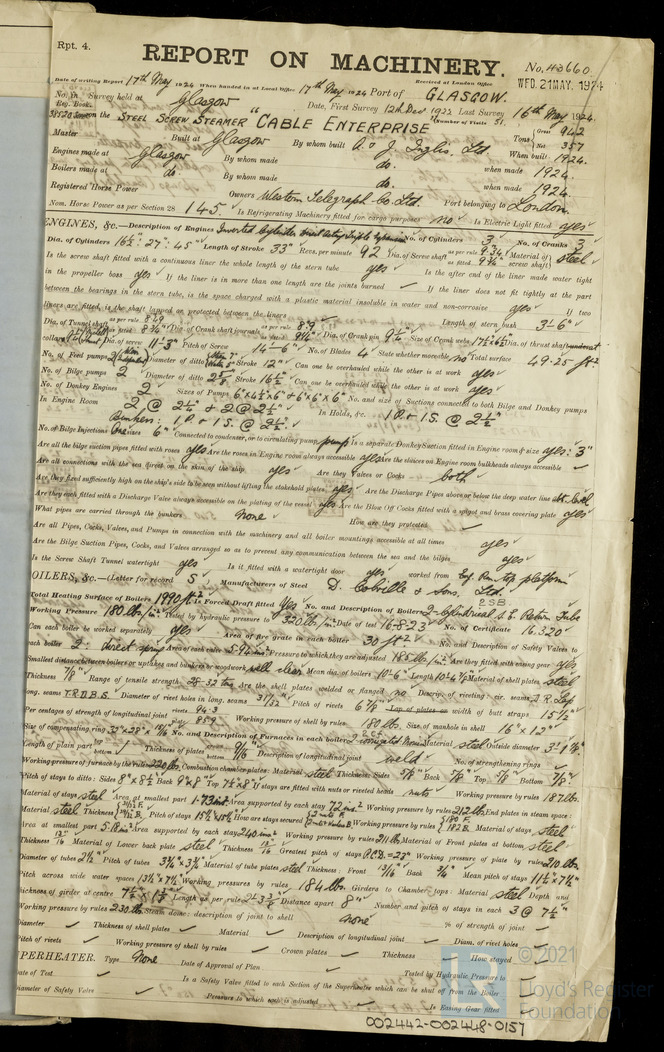 Rpt. 4.
REPORT ON MACHINERY.
No. 43660
WED. 21 MAY. 1924
Date of writing Report 17th May 1924 When handed in at Local Office 17th May 1924 Port of GLASGOW.
Received at London Office
No. in Survey held at Glasgow Date, First Survey 12th Dec 1922 Last Survey 16th May 1924
Reg. Book.
on the STEEL SCREW STEAMER "CABLE ENTERPRISE" Number of Visits 51
Tons Gross 942
Net 357
Master Built at Glasgow By whom built A. & J. Inglis, Ltd. When built 1924.
Engines made at Glasgow By whom made do. when made 1924.
Boilers made at do. By whom made do. when made 1924.
Registered Horse Power Owners Western Telegraph Co Ltd. Port belonging to London.
Nom. Horse Power as per Section 28 145. Is Refrigerating Machinery fitted for cargo purposes no Is Electric Light fitted yes
ENGINES, &c.—Description of Engines Inverted Cylinder Direct Acting Triple Expansion No. of Cylinders 3 No. of Cranks 3
Dia. of Cylinders 16½" 27" 45" Length of Stroke 33" Revs. per minute 92 Dia. of Screw shaft as per rule 9.34 as fitted 9¾" Material of screw shaft steel
Is the screw shaft fitted with a continuous liner the whole length of the stern tube yes Is the after end of the liner made water tight
in the propeller boss yes If the liner is in more than one length are the joints burned If the liner does not fit tightly at the part
between the bearings in the stern tube, is the space charged with a plastic material insoluble in water and non-corrosive yes If two
liners are fitted, is the shaft lapped or protected between the liners Length of stern bush 3'-6"
Dia. of Tunnel shaft as per rule as fitted 8¾" Dia. of Crank shaft journals as per rule 8.9 as fitted 9¼" Dia. of Crank pin 9¼" Size of Crank webs Dia. of thrust shaft under
collars Dia. of screw 11'-3" Pitch of Screw 14'-6" No. of Blades 4 State whether moveable no Total surface 49.25 ft²
No. of Feed pumps 2 Diameter of ditto Stroke 12" Can one be overhauled while the other is at work yes
No. of Bilge pumps 2 Diameter of ditto Stroke 16½" Can one be overhauled while the other is at work yes
No. of Donkey Engines 2 Sizes of Pumps 6"x4½"x6" + 6"x6"x6" No. and size of Suctions connected to both Bilge and Donkey pumps
In Engine Room 2 @ 2½" + 2 @ 2½" In Holds, &c. 1P. + 1S. @ 2½"
Bunkers: 1P. + 1S. @ 2½"
No. of Bilge Injections One sizes 6" Connected to condenser, or to circulating pump pump Is a separate Donkey Suction fitted in Engine room & size yes: 3"
Are all the bilge suction pipes fitted with roses yes Are the roses in Engine room always accessible yes Are the sluices on Engine room bulkheads always accessible
Are all connections with the sea direct on the skin of the ship yes Are they Valves or Cocks both
Are they fixed sufficiently high on the ship's side to be seen without lifting the stokehold plates yes Are the Discharge Pipes above or below the deep water line at level
Are they each fitted with a Discharge Valve always accessible on the plating of the vessel yes Are the Blow Off Cocks fitted with a spigot and brass covering plate yes
What pipes are carried through the bunkers none How are they protected
Are all Pipes, Cocks, Valves, and Pumps in connection with the machinery and all boiler mountings accessible at all times yes
Are the Bilge Suction Pipes, Cocks, and Valves arranged so as to prevent any communication between the sea and the bilges yes
Is the Screw Shaft Tunnel watertight yes Is it fitted with a watertight door yes worked from Eng. Rm top platform
OILERS, &c.—(Letter for record S Manufacturers of Steel D. Colville & Sons. Ltd.
2SB
Total Heating Surface of Boilers 1990 ft² Is Forced Draft fitted yes No. and Description of Boilers 2-Cylindrical S.E. Return Tube
Working Pressure 180 lbs/in² Tested by hydraulic pressure to 320 lbs/in² Date of test 16-8-23 No. of Certificate 16.320
Can each boiler be worked separately yes Area of fire grate in each boiler 30 ft² No. and Description of Safety Valves to
each boiler 2: direct spring Area of each valve 5.94 in² Pressure to which they are adjusted 185 lb/in² Are they fitted with easing gear yes
Smallest distance between boilers or uptakes and bunkers or woodwork well clear Mean dia. of boilers 10'-6" Length Material of shell plates steel
Thickness Range of tensile strength 28-32 tons Are the shell plates welded or flanged no Descrip. of riveting: cir. seams D.R. Lap
long. seams T.R.D.B.S. Diameter of rivet holes in long. seams Pitch of rivets 6⅞" Lap of plates or width of butt straps 15½"
Per centages of strength of longitudinal joint rivets 94.3 plate 85.9 Working pressure of shell by rules 180 lb. Size of manhole in shell 16" x 12"
Size of compensating ring No. and Description of Furnaces in each boiler Material steel Outside diameter
Length of plain part top bottom Thickness of plates Description of longitudinal joint weld No. of strengthening rings
Working pressure of furnace by the rules 220 lbs. Combustion chamber plates: Material steel Thickness: Sides Back Top Bottom ⅞"
Pitch of stays to ditto: Sides 8"x8½" Back 9"x8" Top If stays are fitted with nuts or riveted heads nuts Working pressure by rules 187 lb.
Material of stays steel Area at smallest part 1.73 in² Area supported by each stay 72 ins² Working pressure by rules 212 lb. End plates in steam space:
Material steel Thickness Pitch of stays How are stays secured Working pressure by rules Material of stays steel
Area at smallest part 5.18 in² Area supported by each stay 240 ins² Working pressure by rules 211 lb. Material of Front plates at bottom steel
Thickness Material of Lower back plate steel Thickness Greatest pitch of stays Working pressure of plate by rules 210 lb.
Diameter of tubes 2½" Pitch of tubes 3¾"x3¾" Material of tube plates steel Thickness: Front Back ¾" Mean pitch of stays
Pitch across wide water spaces Working pressures by rules 184 lb. Girders to Chamber tops: Material steel Depth and
thickness of girder at centre Length as per rule Distance apart 8" Number and pitch of stays in each 3 @ 7½"
Working pressure by rules 230 lb. Steam dome: description of joint to shell none % of strength of joint
Diameter Thickness of shell plates Material Description of longitudinal joint Diam. of rivet holes
Pitch of rivets Working pressure of shell by rules Crown plates Thickness How stayed
UPERHEATER. Type None Date of Approval of Plan Tested by Hydraulic Pressure to
Date of Test Is a Safety Valve fitted to each Section of the Superheater which can be shut off from the Boiler
Diameter of Safety Valve Pressure to which each is adjusted Is Easing Gear fitted
© 2021
Lloyd's Register
Foundation
002442-002448-0157